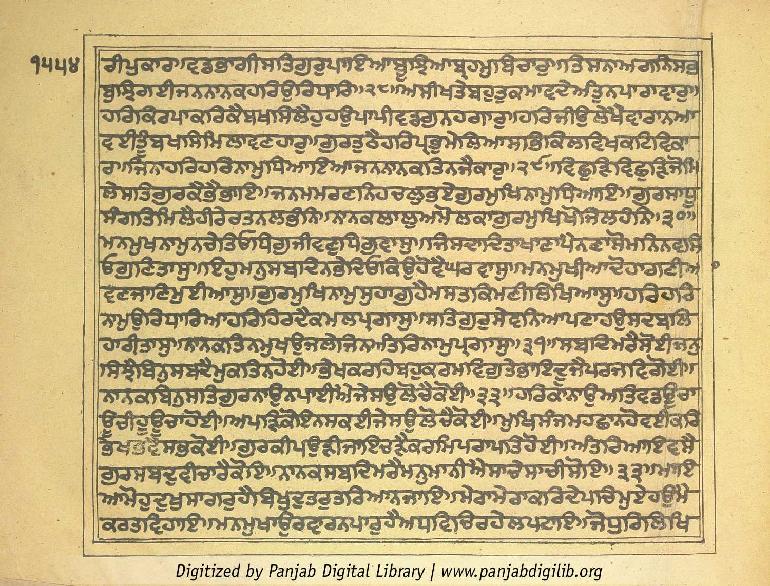 ੧੫੫੪
ਰੀਪੁਕਾਰਾ॥ਵਡਭਾਗੀਸਤਿਗੁਰੁਪਾਇਆਬੂਝਿਆਬ੍ਰਹਮੁਬਿਚਾਰੁ॥ਤਿਸਨਾਅਗਨਿਸਭ
ਬੁਝਿਗਈਜਨਨਾਨਕਹਰਿਉਰਿਧਾਰਿ॥੨੮॥ਅਸੀਖਤੇਬਹੁਤੁਕਮਾਵਦੇਅੰਤੁਨਪਾਰਾਵਾਰੁ॥
ਹਰਿਕਿਰਪਾਕਰਿਕੈਬਖਸਿਲੈਹੁਹਉਪਾਪੀਵਡਗੁਨਹਗਾਰੁ॥ਹਰਿਜੀਉਲੇਖੈਵਾਰਨਆ
ਵਈਤੂੰਬਖਸਿਮਿਲਾਵਣਹਾਰੁ॥ਗੁਰਤੁਠੈਹਰਿਪ੍ਰਭੁਮੇਲਿਆਸਭਿਕਿਲਵਿਖਕਟਿਵਿਕਾ
ਰ॥ਜਿਨਾਹਰਿਹਰਿਨਾਮੁਧਿਆਇਆਜਨਨਾਨਕਤਿਨਜੈਕਾਰੁ॥੨੯॥ਵਿਛੁੜਿਵਿਛੁੜਿਜੋਮਿ
ਲੇਸਤਿਗੁਰਕੇਭੈਭਾਇ॥ਜਨਮਮਰਣਨਿਹਚਲੁਭਏਗੁਰਮੁਖਿਨਾਮੁਧਿਆਇ॥ਗੁਰਸਾਧੂ
ਸੰਗਤਿਮਿਲੈਹੀਰੇਰਤਨਲਭੰਨਿ॥ਨਾਨਕਲਾਲੁਅਮੋਲਕਾਗੁਰਮੁਖਿਖੋਜਿਲਹੰਨਿ॥੩੦॥
ਮਨਮੁਖਨਾਮੁਨਚੇਤਿਓਧਿਗੁਜੀਵਣੁਧਿਗੁਵਾਸੁ॥ਜਿਸਦਾਦਿਤਾਖਾਣਾਪੈਨਣਾਸੋਮਨਿਨਵਸਿ
ਓਗੁਣਿਤਾਸੁ॥ਇਹੁਮਨੁਸਬਦਿਨਭੇਦਿਓਕਿਉਹੋਵੈਘਰਵਾਸੁ॥ਮਨਮੁਖੀਆਦੋਹਾਗਣੀਆ
ਵਣਜਾਣਿਮੁਈਆਸੁ॥ਗੁਰਮੁਖਿਨਾਮੁਸੁਹਾਗੁਹੈਮਸਤਕਿਮਣੀਲਿਖਿਆਸੁ॥ਹਰਿਹਰਿ
ਨਾਮੁਉਰਿਧਾਰਿਆਹਰਿਹਿਰਦੈਕਮਲਪ੍ਰਗਾਸੁ॥ਸਤਿਗੁਰੁਸੇਵਨਿਆਪਣਾਹਉਸਦਬਲਿ
ਹਾਰੀਤਾਸੁ॥ਨਾਨਕਤਿਨਮੁਖਉਜਲੇਜਿਨਅੰਤਰਿਨਾਮੁਪ੍ਰਗਾਸੁ॥੩੧॥ਸਬਦਿਮਰੈਸੋਈਜਨੁ
ਸਿਝੈਬਿਨੁਸਬਦੈਮੁਕਤਿਨਹੋਈ॥ਭੇਖਕਰਹਿਬਹੁਕਰਮਵਿਗੁਤੇਭਾਇਦੂਜੈਪਰਜਵਿਗੋਈ॥
ਨਾਨਕਬਿਨੁਸਤਿਗੁਰਨਾਉਨਪਾਈਐਜੇਸਉਲੋਚੈਕੋਈ॥੩੨॥ਹਰਿਕਾਨਾਉਅਤਿਵਡਊਚਾ
ਊਚੀਹੂਊਚਾਹੋਈ॥ਅਪੜਿਕੋਇਨਸਕਈਜੇਸਉਲੋਚੈਕੋਈ॥ਮੁਖਿਸੰਜਮਹਛਾਨਹੋਵਈਕਰਿ
ਭੇਖਭਵੈਸਭਕੋਈ॥ਗੁਰਕੀਪਉੜੀਜਾਇਚੜੈਕਰਮਿਪਰਾਪਤਿਹੋਈ॥ਅੰਤਰਿਆਇਵਸੈ
ਗੁਰਸਬਦੁਵੀਚਾਰੈਕੋਇ॥ਨਾਨਕਸਬਦਿਮਰੈਮਨੁਮਾਨੀਐਸਾਚੇਸਾਚੀਸੋਇ॥੩੩॥ਮਾਇ
ਆਮੋਹੁਦੁਖੁਸਾਗਰੁਹੈਬਿਖੁਦੁਤਰੁਤਰਿਆਨਜਾਇ॥ਮੇਰਾਮੇਰਾਕਰਦੇਪਚਿਮੁਏਹਉਮੈ
ਕਰਤਵਿਹਾਇ॥ਮਨਮੁਖਾਉਰਵਾਰਨਪਾਰੁਹੈਅਧਵਿਚਿਰਹੇਲਪਟਾਇ॥ਜੋਧੁਰਿਲਿਖਿ
Digitized by Panjab Digital Library | www.panjabdigilib.org